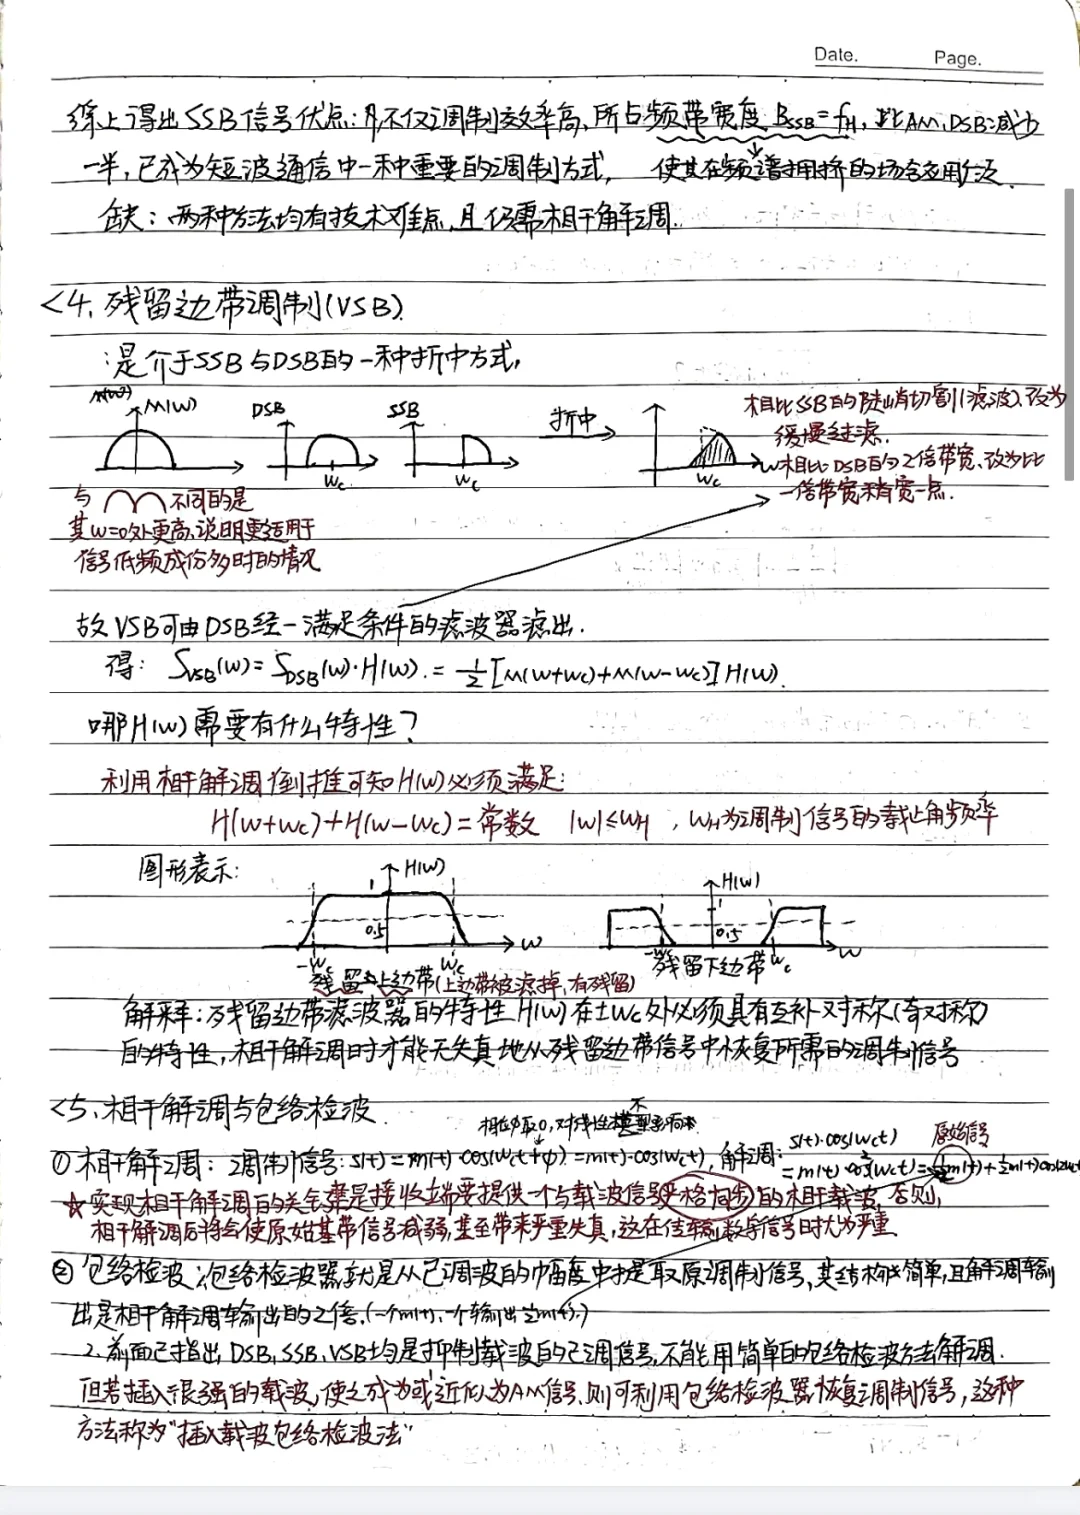 Date. Page.
综上得出SSB信号优点:其不仅调制效率高,所占频带宽度 B_SSB=f_H,比AM,DSB减少
一半,已成为短波通信中一种重要的调制方式, 使其在频谱拥挤的场合应用广泛.
缺:两种方法均有技术难点,且仍需相干解调.
<4、残留边带调制(VSB).
:是介于SSB与DSB的一种折中方式,
M(w) M(w) DSB SSB 折中
wc wc wc w
相比SSB的陡峭切割(滤波),改为
缓慢过滤.
相比DSB的2倍带宽,改为比
一倍带宽稍宽一点.
与 不同的是
其w=0处更高,说明更适用于
信号低频成份多时的情况
故VSB可由DSB经一满足条件的滤波器滤出.
得: S_VSB(w)=S_DSB(w)·H(w).=1/2[M(w+wc)+M(w-wc)]H(w).
哪H(w)需要有什么特性?
利用相干解调倒推可知H(w)必须满足:
H(w+wc)+H(w-wc)=常数 |w|≤w_H , w_H为调制信号的截止角频率
图形表示:
H(w) 1 0.5 -wc wc w
H(w) 1 0.5 -wc wc w
残留上边带(上边带被滤掉,有残留) 残留下边带
解释:残留边带滤波器的特性H(w)在±wc处必须具有互补对称(奇对称)
的特性,相干解调时才能无失真地从残留边带信号中恢复所需的调制信号
<5、相干解调与包络检波
相位φ取0,对线性模型不影响.
①相干解调: 调制信号:s(t)=m(t)·cos(wct+φ)=m(t)·cos(wct),解调:s(t)·cos(wct)
=m(t)·cos²(wct)=1/2m(t)+1/2m(t)cos2wct
原始信号
☆实现相干解调的关键是接收端要提供一个与载波信号严格同步的相干载波,否则,
相干解调后将会使原始基带信号减弱,甚至带来严重失真,这在传输数字信号时尤为严重
②包络检波:包络检波器就是从已调波的幅度中提取原调制信号,其结构简单,且解调输
出是相干解调输出的2倍.(一个m(t),一个输出1/2m(t).)
2.前面已指出,DSB,SSB,VSB均是抑制载波的已调信号,不能用简单的包络检波方法解调.
但若插入很强的载波,使之成为或近似为AM信号,则可利用包络检波器恢复调制信号,这种
方法称为"插入载波包络检波法"